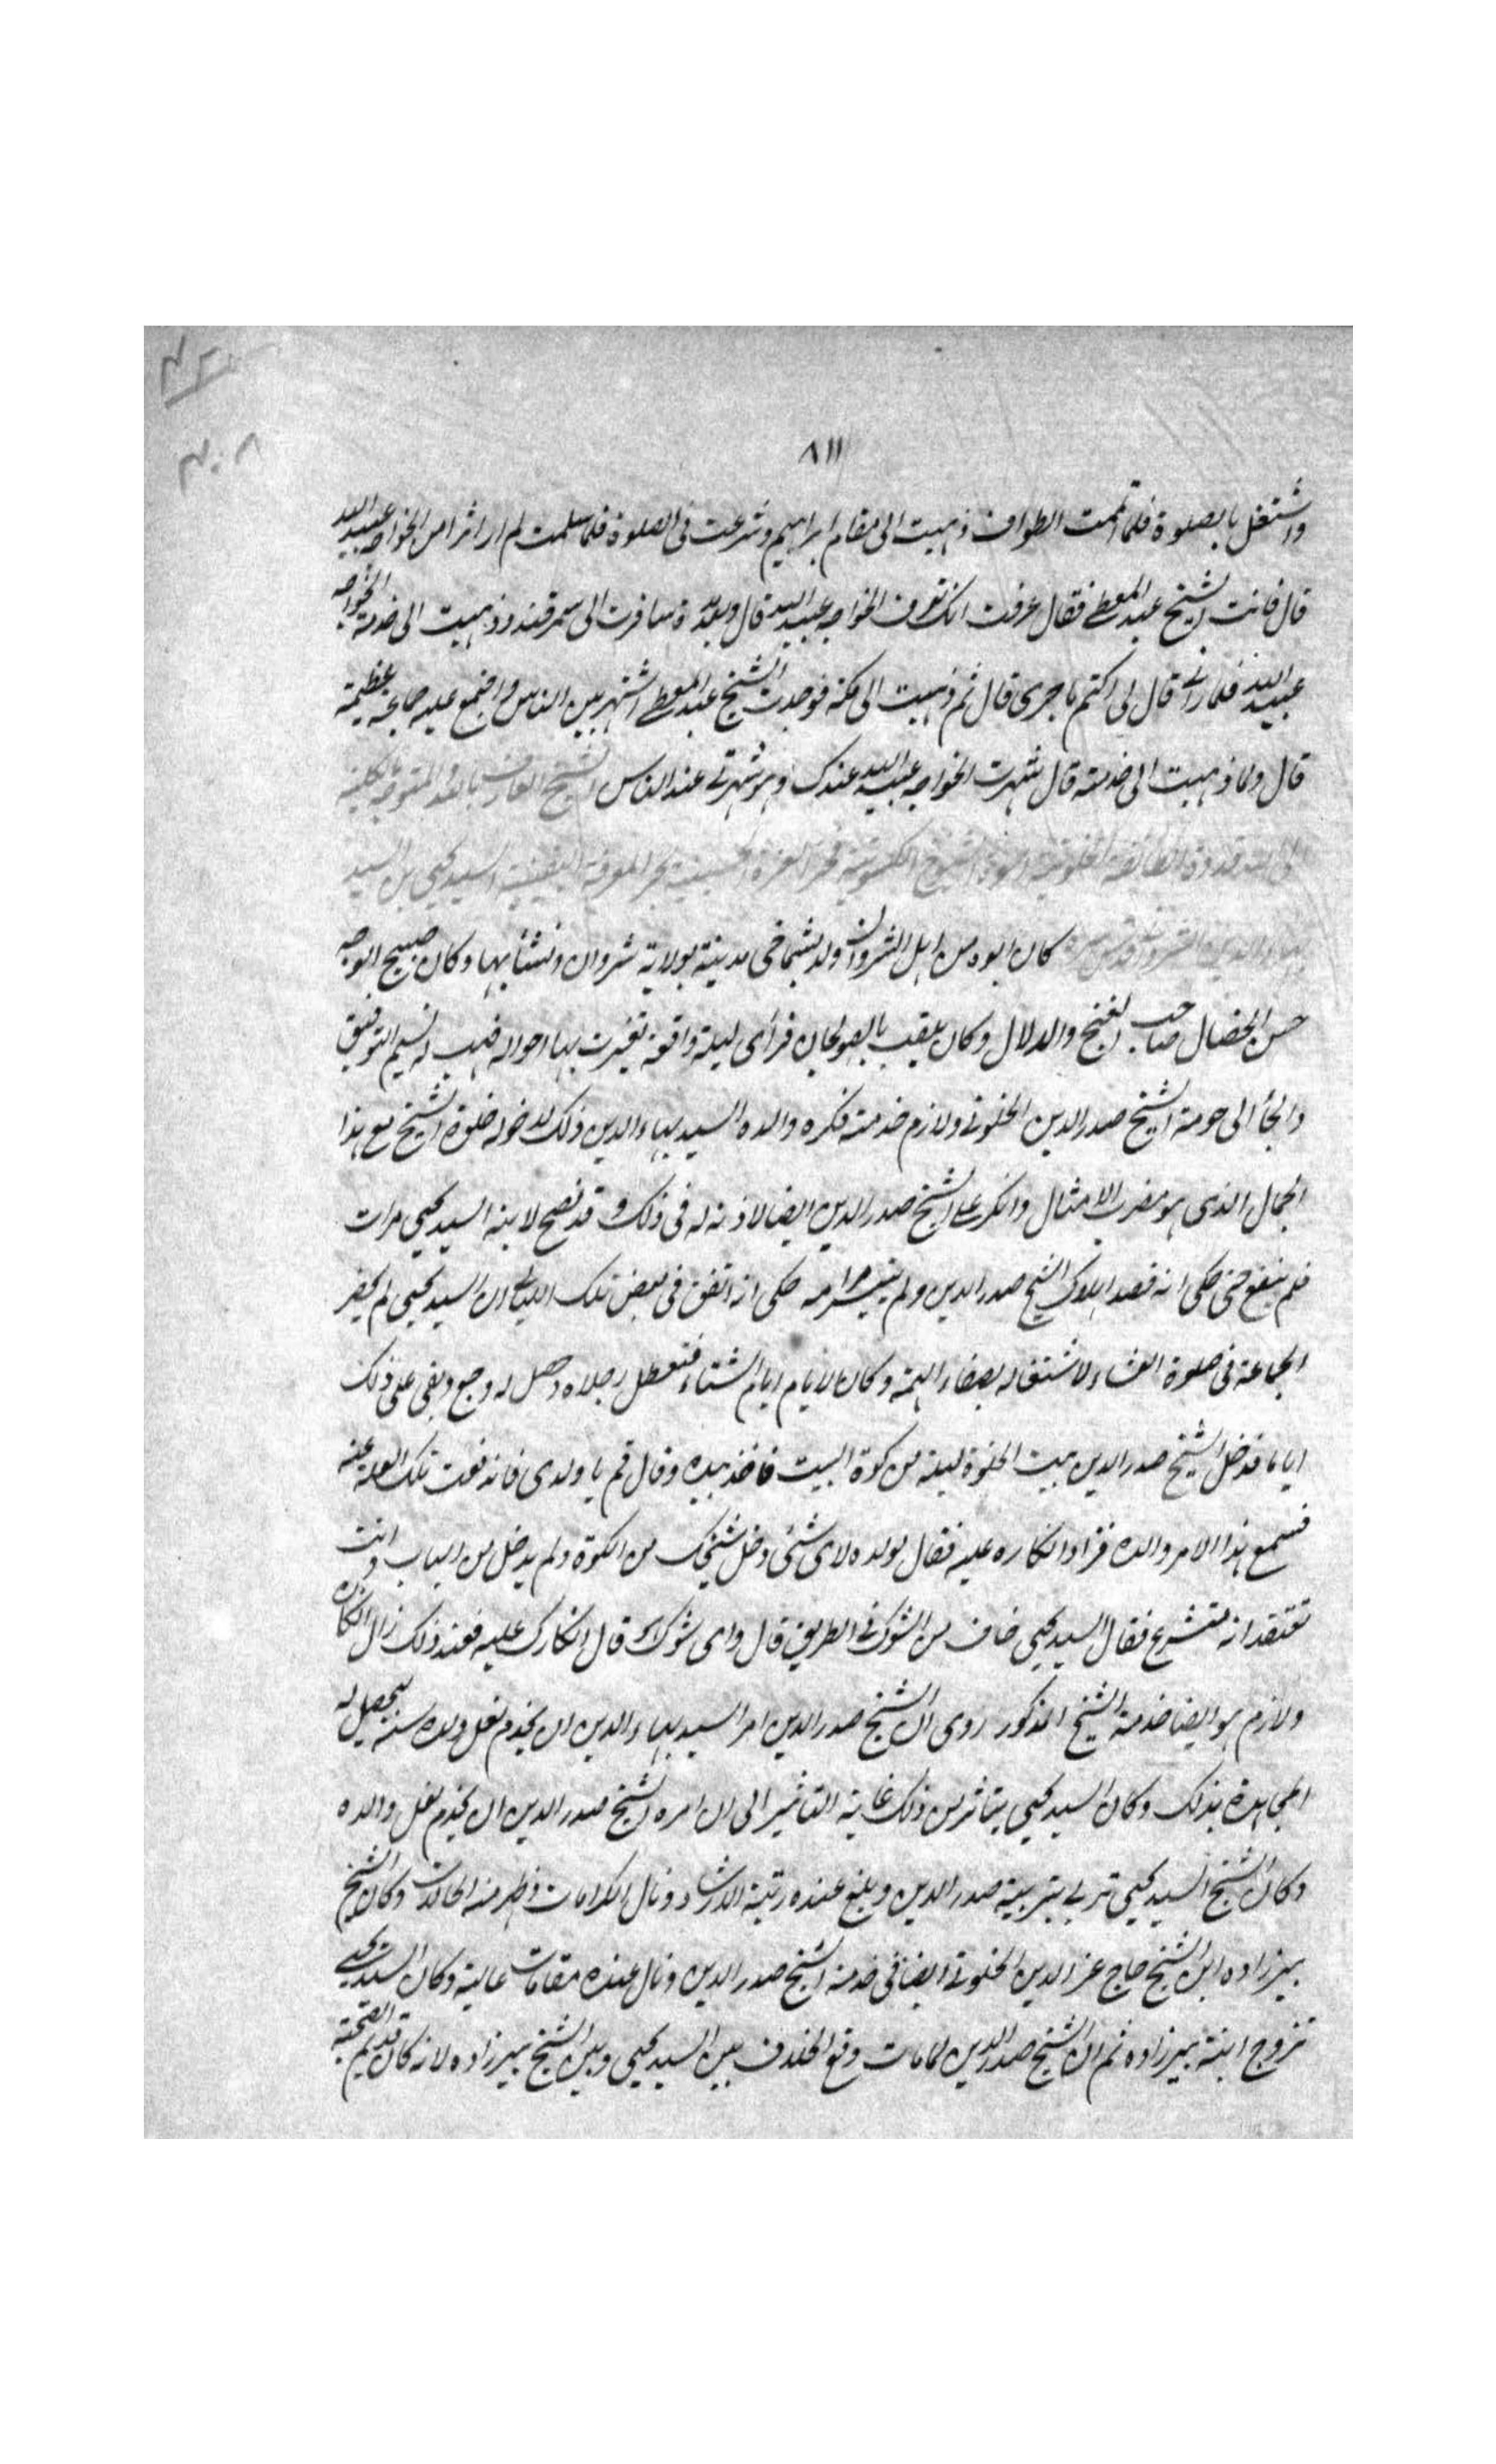 ٨١١
واشتغل بالصلوة فلما تممت الطواف ذهبت الى مقام ابراهيم وشرعت فى الصلوة فلما سلمت لم ار اثرا من الخواجه عبيد الله
قال فاتت الشيخ عبد المعطى فقال عرفت انك تعرف الخواجه عبيد الله قال وبعد مدة سافرت الى سمرقند وذهبت الى خدمة الخواجه
عبيد الله فلما رانى قال لى اكتم ما جرى قال ثم ذهبت الى مكة فوجدت الشيخ عبد المعطى اشتهر بين الناس واجتمع عليه جماعة عظيمة
قال ولما ذهبت الى خدمته قال شهرت الخواجه عبيد الله عندك وهو شهرنى عند الناس الشيخ العارف بالله المتوجه بكليته
الى الله قدوة الطائفة الخلوتية السيد يحيى بن السيد
بهاء الدين الشروانى قدس سره كان ابوه من اهل الشروان ولد بشماخى مدينة بولاية شروان ونشأ بها وكان صبيح الوجه
حسن الخصال صاحب الغنج والدلال وكان يلقب بالصولجان فرأى ليلة واقعة تغيرت بها احواله فهب له نسيم التوفيق
والجأ الى حومة الشيخ صدر الدين الخلوتى ولازم خدمته فكره والده السيد بهاء الدين ذلك لدخوله خلوة الشيخ مع هذا
الجمال الذى هو مضرب الامثال وانكر على الشيخ صدر الدين ايضا لاذنه له فى ذلك وقد نصح لابنه السيد يحيى مرات
فلم ينفع حتى حكى انه قصد اهلاك الشيخ صدر الدين ولم يتيسر مرامه حكى انه اتفق فى بعض تلك الليالى ان السيد يحيى لم يحضر
الجماعة فى صلوة العشاء لاشتغاله بصفاء الهمة وكان الايام ايام الشتاء فتعطل رجلاه وحصل له وجع وبقى على ذلك
اياما فدخل الشيخ صدر الدين بيت الخلوة ليلة من كوة البيت فاخذ بيده وقال قم يا ولدى فانه نعت تلك العلة عنه
فسمع هذا الامر والده فزاد انكاره عليه فقال لولده لاى شئى دخل شيخك من الكوة ولم يدخل من الباب وانت
تعتقد انه متشرع فقال السيد يحيى خاف من الشوك فى الطريق قال واى شوك قال انكارك عليه فعند ذلك زال انكاره
ولازم هو ايضا خدمة الشيخ المذكور روى ان الشيخ صدر الدين امر السيد بهاء الدين ان يخدم نعل ولده سنة ليحصل له
المجاهدة بذلك وكان السيد يحيى يتاثر من ذلك غاية التاثير الى ان امره الشيخ صدر الدين ان يخدم نعل والده
وكان الشيخ السيد يحيى تربى بتربية صدر الدين وبلغ عنده رتبة الارشاد ونال الكرامات وظهر منه الحالات وكان الشيخ
بيرزاده ابن الشيخ حاج عز الدين الخلوتى ايضا فى خدمة الشيخ صدر الدين ونال عنده مقامات عالية وكان السيد يحيى
تزوج ابنة بيرزاده ثم ان الشيخ صدر الدين لما مات وقع الخلاف بين السيد يحيى وبين الشيخ بيرزاده لانه كان قديم الصحبة